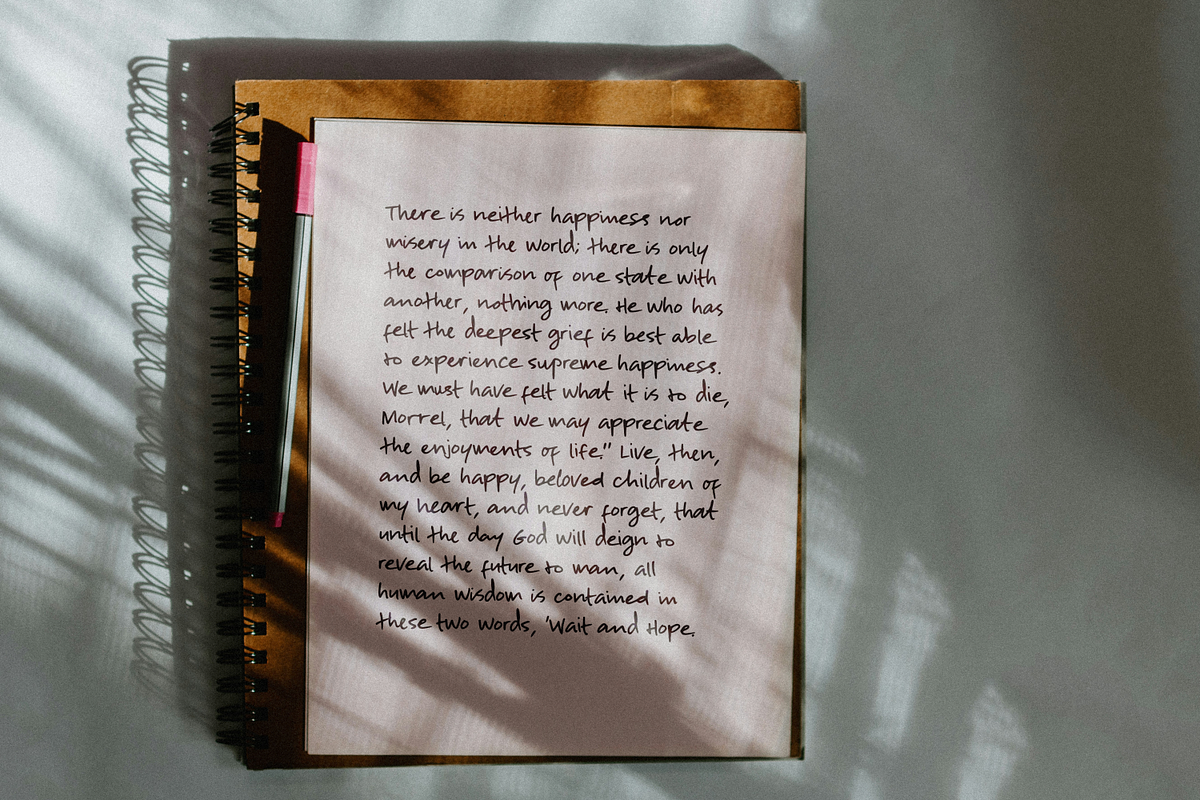 There is neither happiness nor
misery in the world; there is only
the comparison of one state with
another, nothing more. He who has
felt the deepest grief is best able
to experience supreme happiness.
We must have felt what it is to die,
Morrel, that we may appreciate
the enjoyments of life." Live, then,
and be happy, beloved children of
my heart, and never forget, that
until the day God will deign to
reveal the future to man, all
human wisdom is contained in
these two words, 'Wait and Hope.